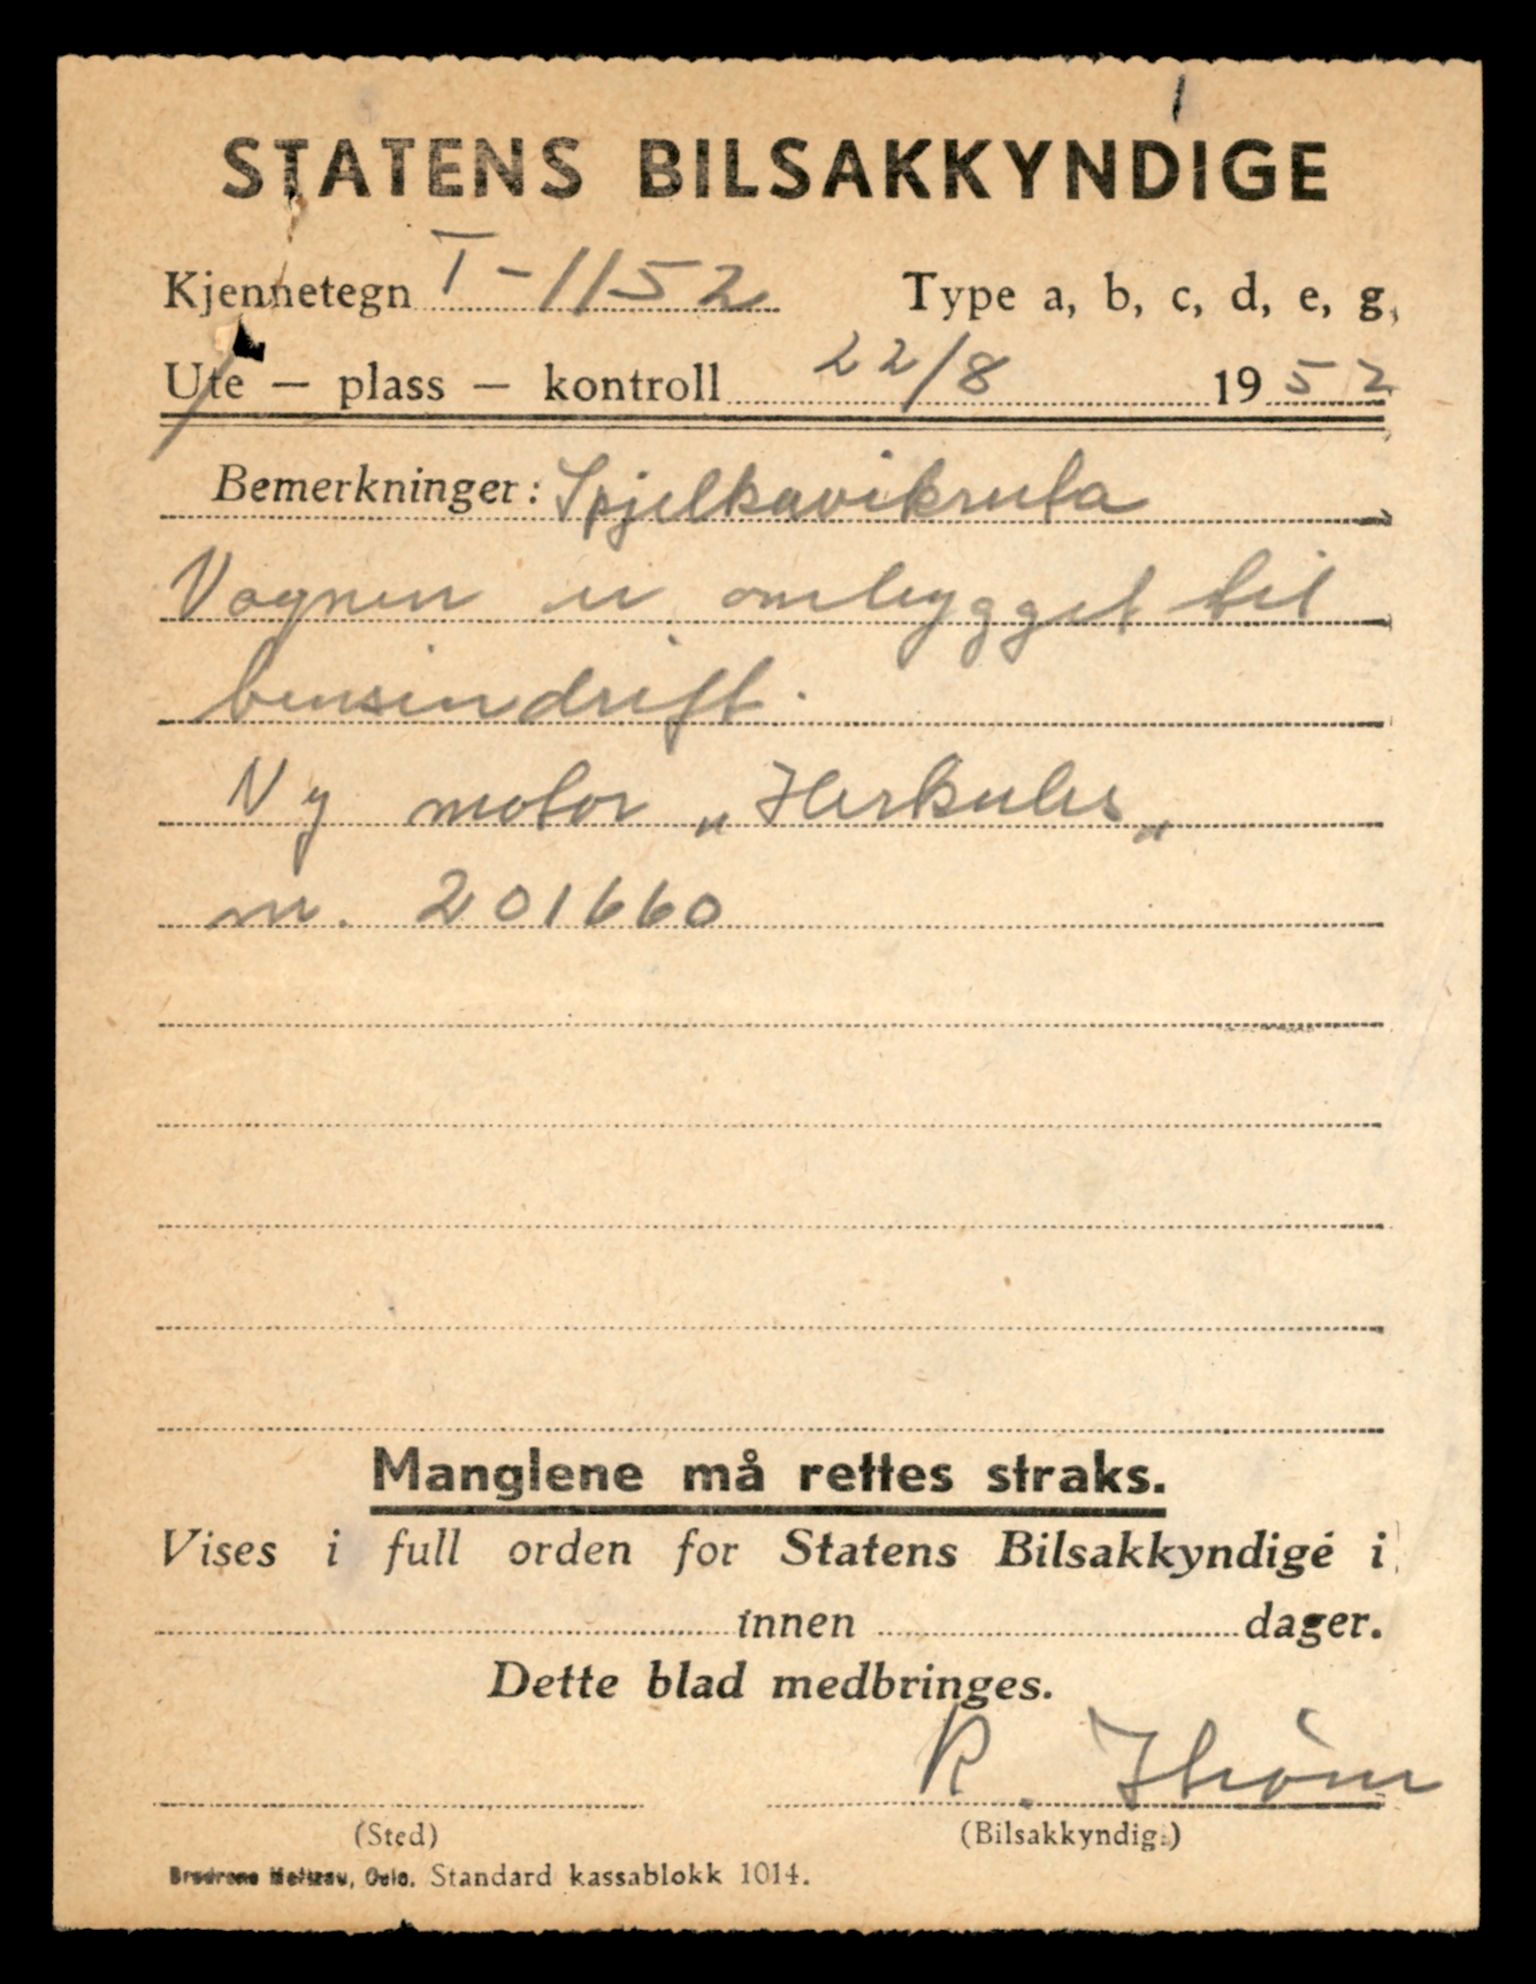 STATENS BILSAKKYNDIGE
Kjennetegn T-1152 Type a, b, c, d, e, g,
Ute — plass — kontroll 22/8 1952
Bemerkninger: Spjelkavikruta
Vognen er ombygget til
bensindrift.
Ny motor „Herkules„
nr. 201660
Manglene må rettes straks.
Vises i full orden for Statens Bilsakkyndige i
innen dager.
Dette blad medbringes.
R.
(Sted) (Bilsakkyndig.)
Brødrene Oslo. Standard kassablokk 1014.